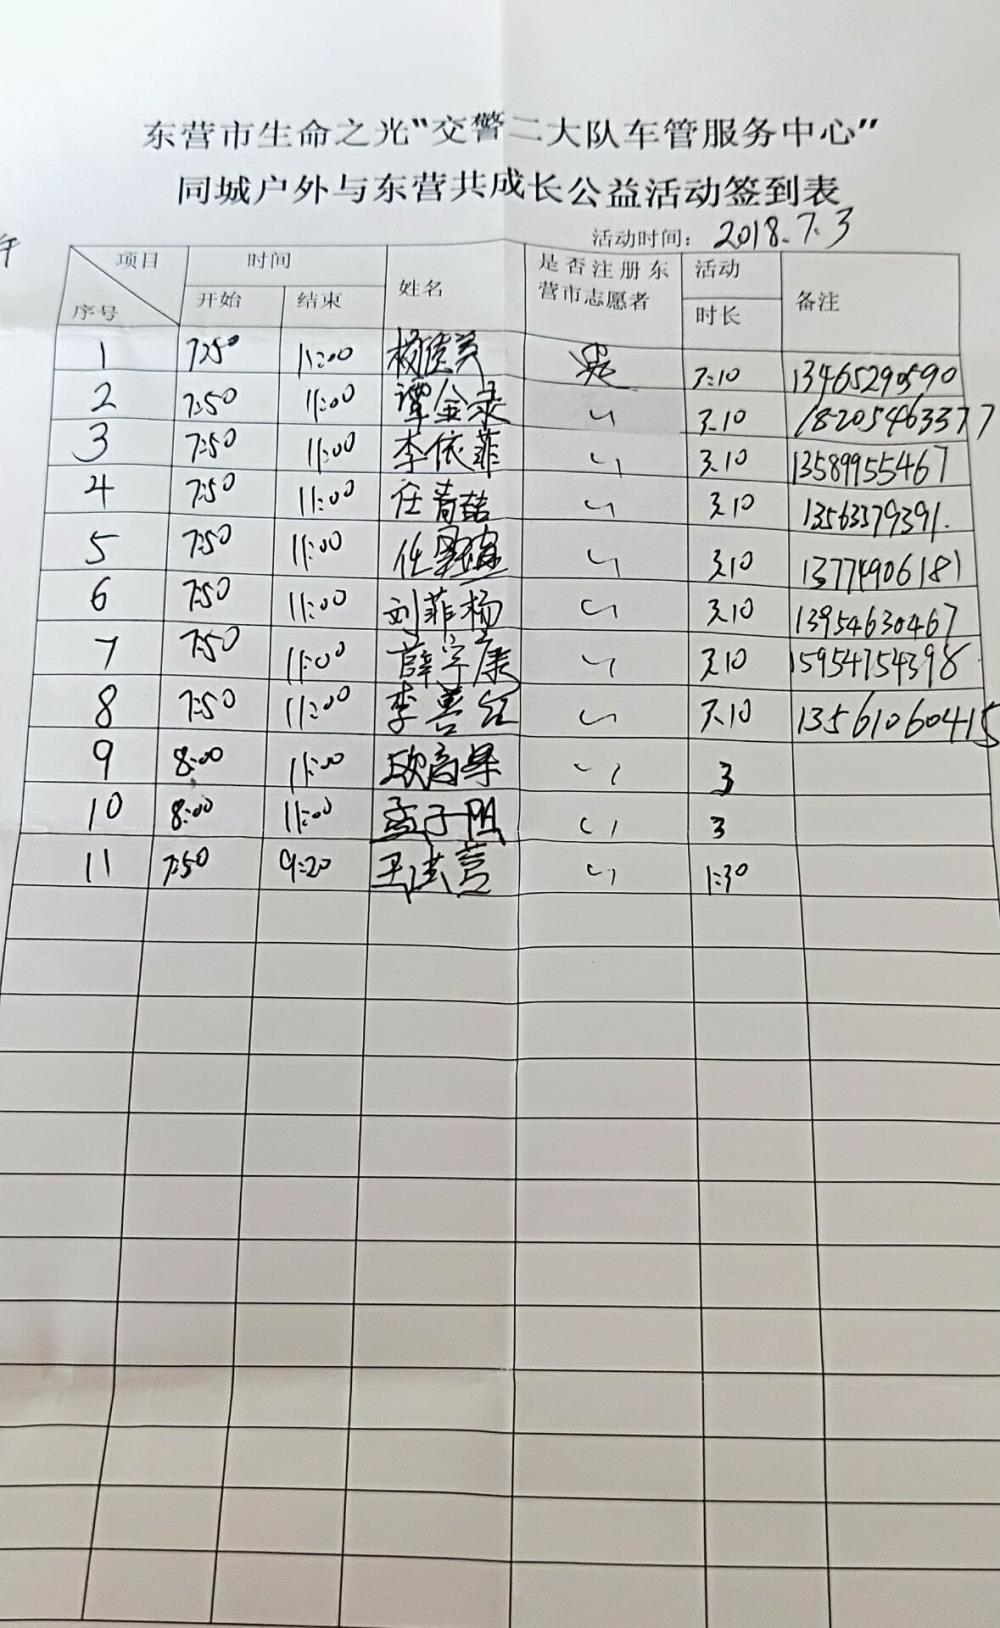 东营市生命之光“交警二大队车管服务中心”
同城户外与东营共成长公益活动签到表
活动时间：2018.7.3
项目 时间 姓名 是否注册东营市志愿者 活动时长 备注
序号 开始 结束
1 7:50 11:00 杨德英 是 3:10 13465290590
2 7:50 11:00 谭金录 〃 3.10 18205463377
3 7:50 11:00 李依菲 〃 3.10 13589955467
4 7:50 11:00 任喆 〃 3.10 13563379391.
5 7:50 11:00 任 〃 3.10 13774906181
6 7:50 11:00 刘菲杨 〃 3.10 13954630467
7 7:50 11:00 薛宇康 〃 3.10 15954754398
8 7:50 11:00 李善红 〃 3.10 13561060415
9 8:00 11:00 〃 3
10 8:00 11:00 孟子 〃 3
11 7:50 9:20 王洪营 〃 1:30